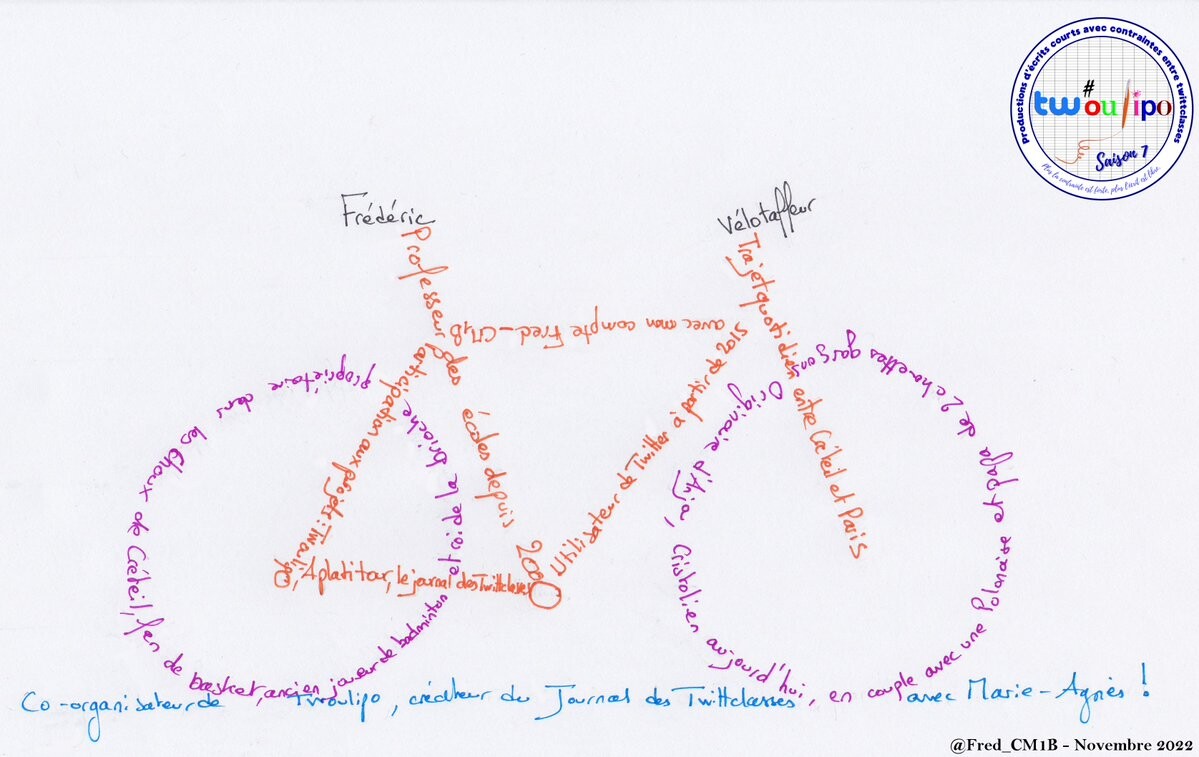 Productions d'écrits courts avec contraintes entre twittclasses
#
twoulipo
Saison 7
Plus la contrainte est forte, plus l'écrit est libre.
Frédéric
Vélotaffeur
Professeur des écoles depuis 2000
Utilisateur de Twitter à partir de 2015
avec mon compte Fred_CM1B
participation aux projets: Twoulipo,
A plati tar, le journal des Twittclasses
Trajet quotidien entre Créteil et Paris
Originaire d'Anjou, Cristolien aujourd'hui, en couple avec une Polonaise papa de 2 chouettes garçons
propriétaire dans les Choux de Créteil, fan de basket, ancien joueur de badminton et roi de la brioche
Co-organisateur de Twoulipo, créateur du Journal des Twittclasses avec Marie-Agnès !
@Fred_CM1B - Novembre 2022